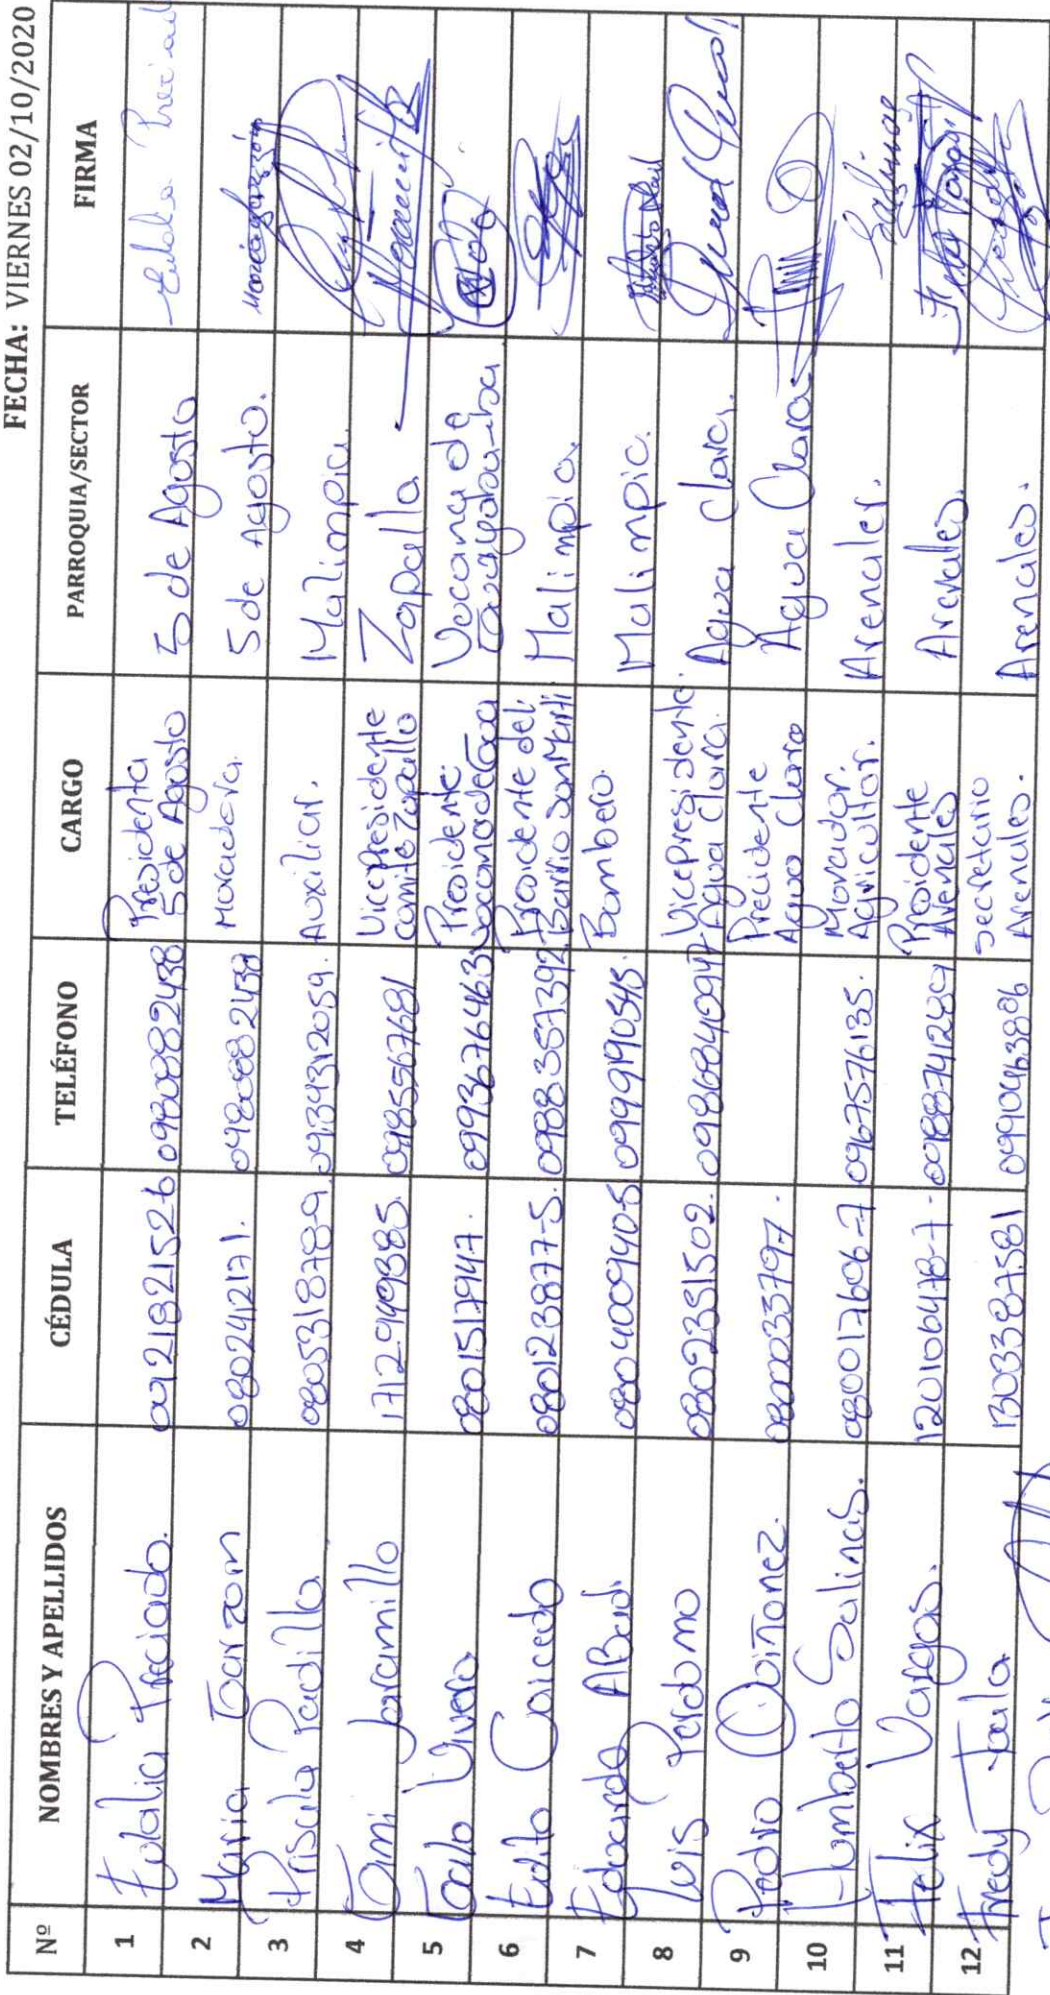 FECHA: VIERNES 02/10/2020
Nº NOMBRES Y APELLIDOS CÉDULA TELÉFONO CARGO PARROQUIA/SECTOR FIRMA
1 Eulalia Preciado. 0921821526 0980882438 Presidenta 5 de Agosto 5 de Agosto Eulalia Preciado
2 Maria Garzon 0802412171. 0980882438 Moradora. 5 de Agosto. Maria Garzón
3 Priscila Padilla 0805318789. 0934312059. Auxiliar. Malimpia.
4 Jaramillo 1712949385. 0985567681 Vicepresidente comite Zapallo Zapalla
5 Vivero 0801517947. 0993676463 Presidente. 
6 Edito Caicedo 080123877-5. 0988357392 Presidente del Barrio San Martin Malimpia.
7 Eduardo ABad. 080400940-5 0999190545. Bombero. Malimpia.
8 Luis Perdomo 0802351502. 0986840947 Vicepresidente. Agua Clara. Agua Clara.
9 Pedro Quiñonez. 0800033797. Precidente Agua Clara Agua Clara
10 Humberto Salinas. 080017606-7 0967576135. Morador. Agricultor. Arenales. Salinas
11 Felix Vargas. 120106478-7- 0988741289 Presidente Arenales Arenales.
12 Fredy 1303387581 0990463806 secretario Arenales. Arenales.